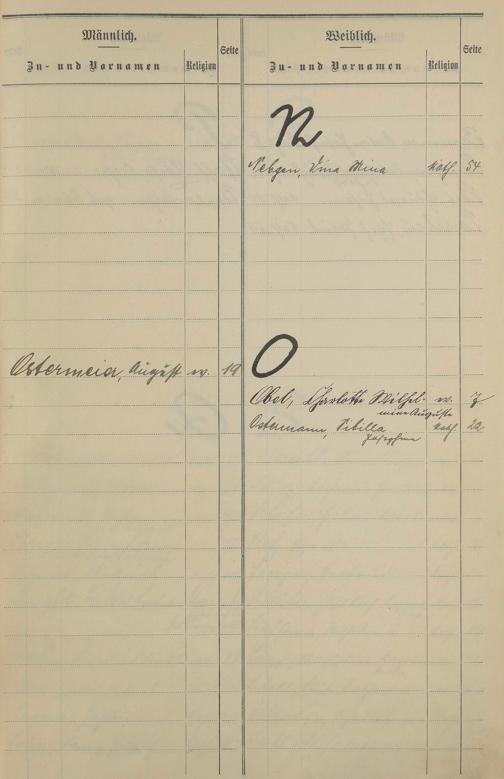 Männlich.
Zu- und Vornamen Religion Seite
Weiblich.
Zu- und Vornamen Religion Seite
N
Nebgen, Mina kath. 54
O
Ostermeier, August ev. 19
Obel, Charlotte Wilhel- ev. 7
mine Auguste
Ostermann, Sibilla kath. 22
Josephine